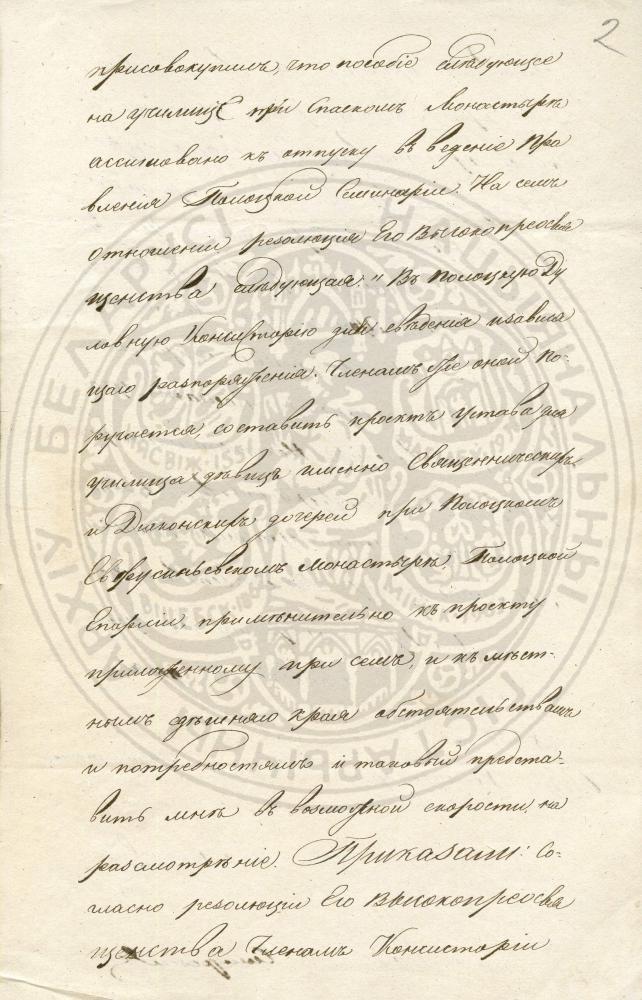 2
присовокупилъ, что пособіе слѣдующее
на училищѣ при Спаскомъ Монастырѣ
ассигновано къ отпуску въ веденіе Пра
вленія Полоцкой Семинаріи. На семъ
отношеніи резолюція Его Высокопреосвя
щенства слѣдующая: "Въ Полоцкую Ду
ховную Консисторію для сведенія и зависи
щаго распоряженія. Членамъ же оной по-
ручается, составить проэктъ устава для
училища дѣвицъ именно Священническихъ
и Діаконскихъ дочерей при Полоцкомъ
Евфусиньевскомъ монастырѣ, Полоцкой
Епархіи, примѣнительно къ проэкту
приложенному при семъ, и къ мѣст-
нымъ здѣшняго края обстоятельствамъ
и потребностямъ и таковый предста-
вить мнѣ въ возможной скорости, на
разсмотрѣніе. Приказали: Со-
гласно резолюціи Его Высокопреосвя
щенства Членамъ Консисторіи